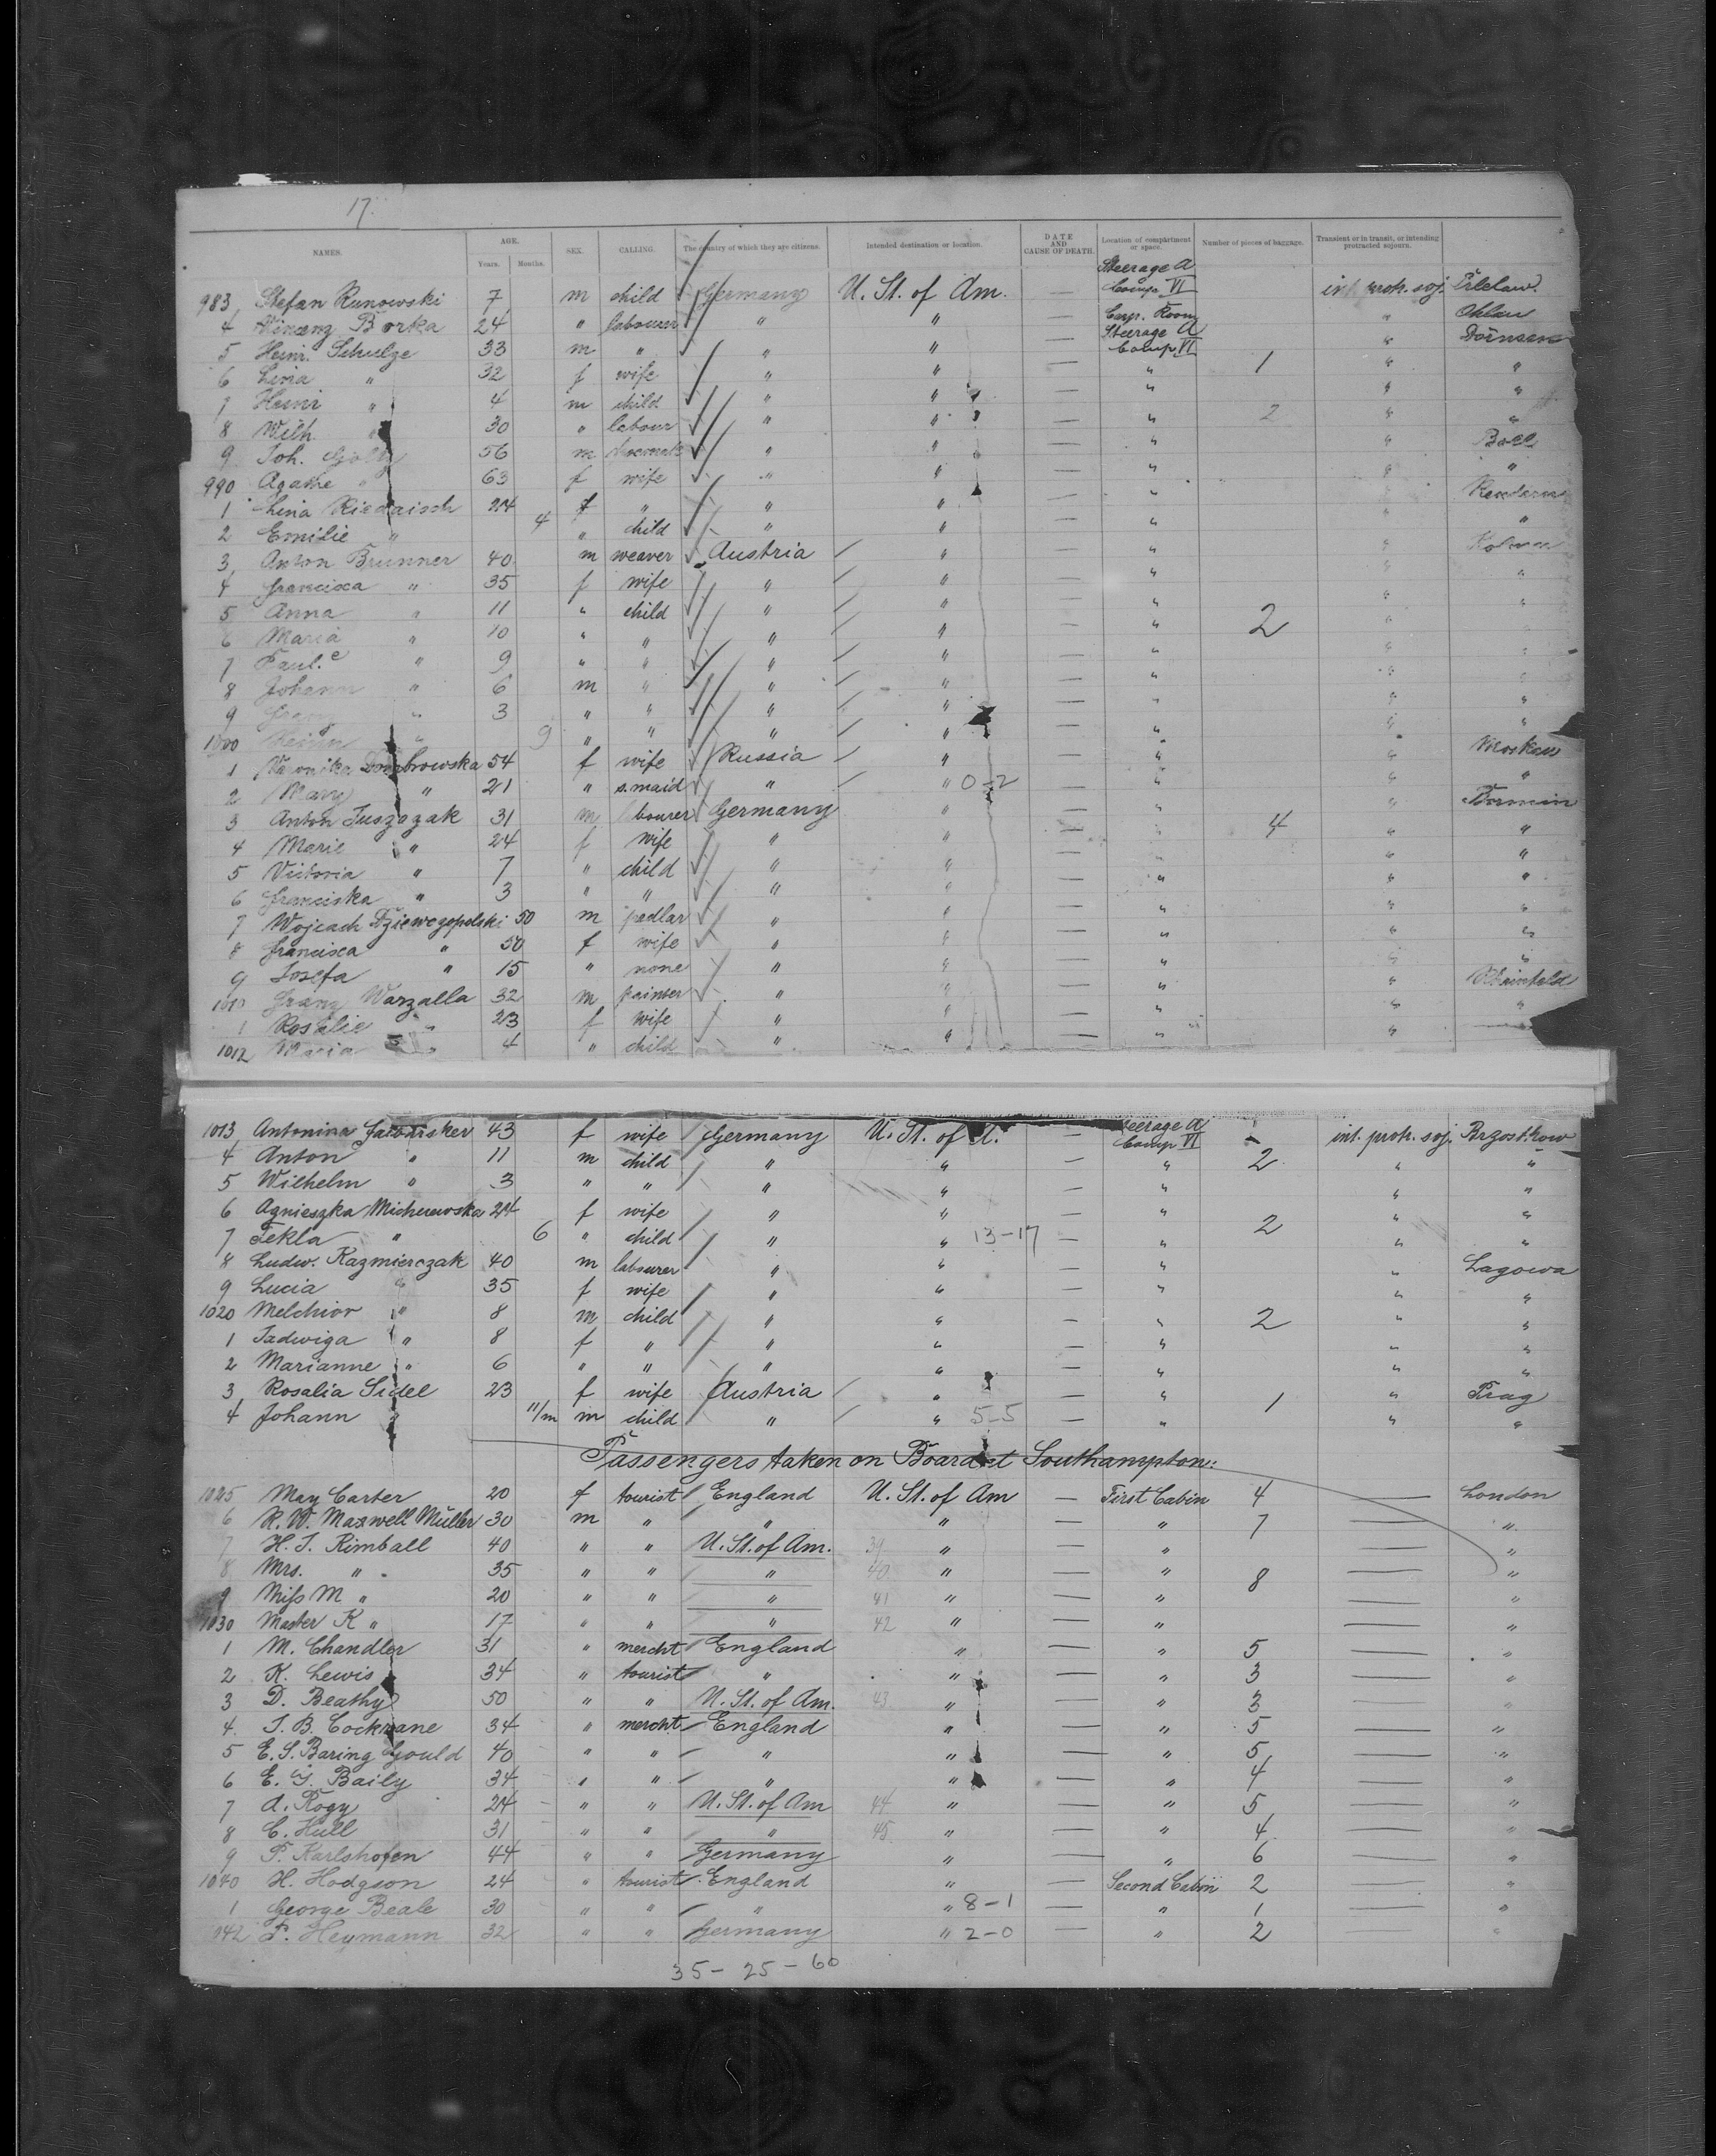 17.
NAMES. AGE. Years. Months. SEX. CALLING. The country of which they are citizens. Intended destination or location. DATE AND CAUSE OF DEATH. Location of compartment or space. Number of pieces of baggage. Transient or in transit, or intending protracted sojourn.
983 Stefan Runowski 7 m child Germany U. St. of Am. — Steerage A Comp VI int. protr. soj.
4 Borka 24 " labourer " " — " Ohlau
5 Heinr. Schulze 33 m " " " — Steerage A Comp VI "
6 Lina " 32 f wife " " — " 1 " "
7 Heinr " 4 m child " " — " " "
8 Wilh " 30 " labour " " — " 2 " "
9 Joh. 56 m " " — " "
990 " 63 f wife " " — " " "
1 Lina 24 f " " " — " "
2 Emilie " 4 " child " " — " " "
3 Anton Brunner 40 m weaver Austria " — " "
4 Francisca " 35 f wife " " — " " "
5 Anna " 11 " child " " — " " "
6 Maria " 10 " " " " — " 2 " "
7 Paul.e " 9 " " " " — " " "
8 Johann " 6 m " " " — " " "
9 " 3 " " " " — " " "
1000 " 9 " " " " — " " "
1 Veronika Dombrowska 54 f wife Russia " — " "
2 Mary " 21 " s. maid " " 0-2 — " " "
3 Anton Tuszozak 31 m labourer Germany " — " "
4 Marie " 24 f wife " " — " 4 " "
5 Victoria " 7 " child " " — " " "
6 Franciska " 3 " " " " — " " "
7 Wojcach 50 m pedlar " " — " " "
8 Francisca " 50 f wife " " — " " "
9 Josefa " 15 " none " " — " " "
1010 Franz Warzalla 32 m painter " " — " " Rheinfeld
1 Rosalie " 23 f wife " " — " " "
1012 Maria " 4 " child " " — " "
1013 Antonina 43 f wife Germany U. St. of A. — Steerage A Comp VI int. protr. soj. Brzostkow
4 Anton " 11 m child " " — " 2 " "
5 Wilhelm " 3 " " " " — " " "
6 Agnieszka 24 f wife " " — " " "
7 Tekla " 6 " child " " 13-17 — " 2 " "
8 Ludw. Kazmierczak 40 m labourer " " — " " Lagowa
9 Lucia " 35 f wife " " — " " "
1020 Melchior " 8 m child " " — " 2 " "
1 Jadwiga " 8 f " " " — " " "
2 Marianne " 6 " " " " — " " "
3 Rosalia Sidel 23 f wife Austria " — " " Prag
4 Johann " 11/m m child " " 5-5 — " 1 " "
Passengers taken on Board at Southampton:
1025 May Carter 20 f tourist England U. St. of Am — First Cabin 4 — London
6 R. W. Maxwell Müller 30 m " " " — " 7 — "
7 H. J. Kimball 40 " " U. St. of Am. 39 " — " — "
8 Mrs. " 35 " " " 40 " — " 8 — "
9 Miss M " 20 " " " 41 " — " — "
1030 Master K " 17 " " " 42 " — " — "
1 M. Chandler 31 " mercht England " — " 5 — "
2 K. Lewis 34 " tourist " " — " 3 — "
3 D. Beathy 50 " " U. St. of Am. 43 " — " 3 — "
4 J. B. Cockrane 34 " mercht England " — " 5 — "
5 E. S. Baring Gould 40 " " " " — " 5 — "
6 E. G. Baily 34 " " " " — " 4 — "
7 A. Rogy 24 " " U. St. of Am 44 " — " 5 — "
8 C. Hull 31 " " " 45 " — " 4 — "
9 P. Karlshofen 44 " " Germany " — " 6 — "
1040 H. Hodgson 24 " tourist England " — Second Cabin 2 — "
1 George Beale 30 " " " " 8-1 — " 1 — "
1042 P. Heymann 32 " " Germany " 2-0 — " 2 — "
35 - 25 - 60